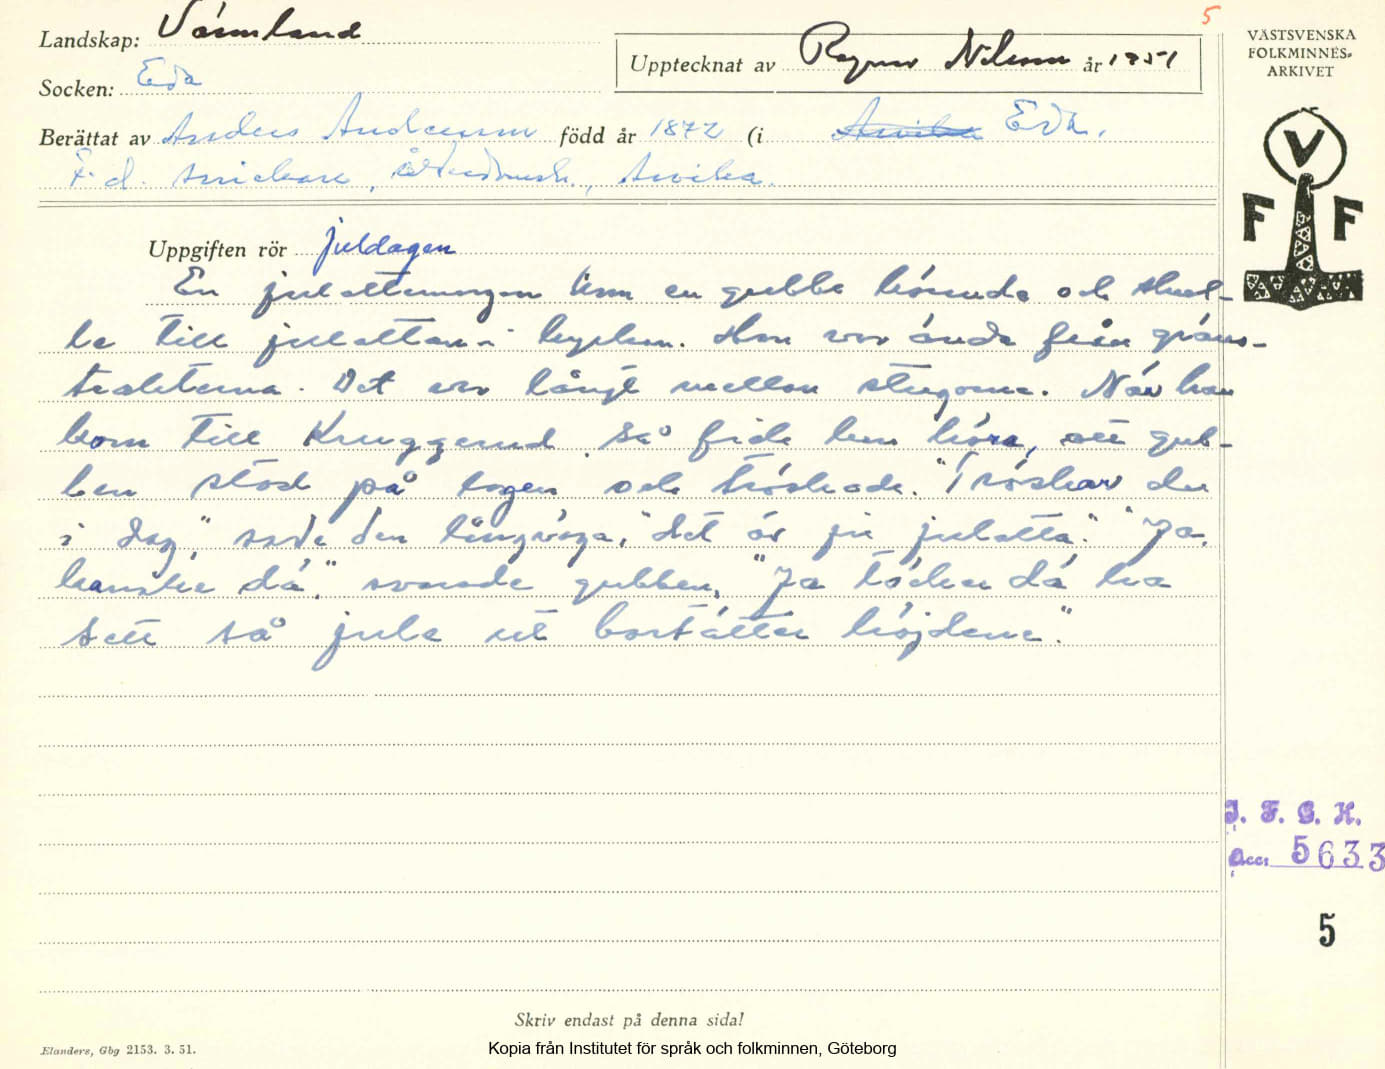 5
Landskap: Värmland
Upptecknat av Ragnar Nilsson år 1951
VÄSTSVENSKA
FOLKMINNES-
ARKIVET
Socken: Eda
Berättat av Anders Andersson född år 1872 (i Arvika Eda.
F.d. snickare, Ålderdomsh., Arvika.
V
F F
Uppgiften rör juldagen
En julottemorgon kom en gubbe körande och skul-
le till julottan i kyrkan. Han var ända från gräns-
trakterna. Det var långt mellan stugorna. När han
kom till Kruggerud så fick han höra, att gub-
ben stod på logen och tröskade. "Tröskar du
i dag," sade den långväga, "det är ju julotta." "Ja,
kanske dä," svarade gubben, "Ja töcker dä ha
sett så jule ut bortätter höjdene."
I. F. G. H.
Acc: 5633
5
Skriv endast på denna sida!
Elanders, Gbg 2153. 3. 51.
Kopia från Institutet för språk och folkminnen, Göteborg